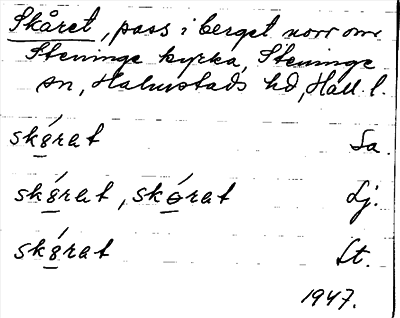 Skåret, pass i berget norr om
Steninge kyrka, Steninge
sn, Halmstads hd, Hall. l.
sk8́rat Sa.
sk8́rat, skǿrat Lj.
sk8́rat St.
1947.